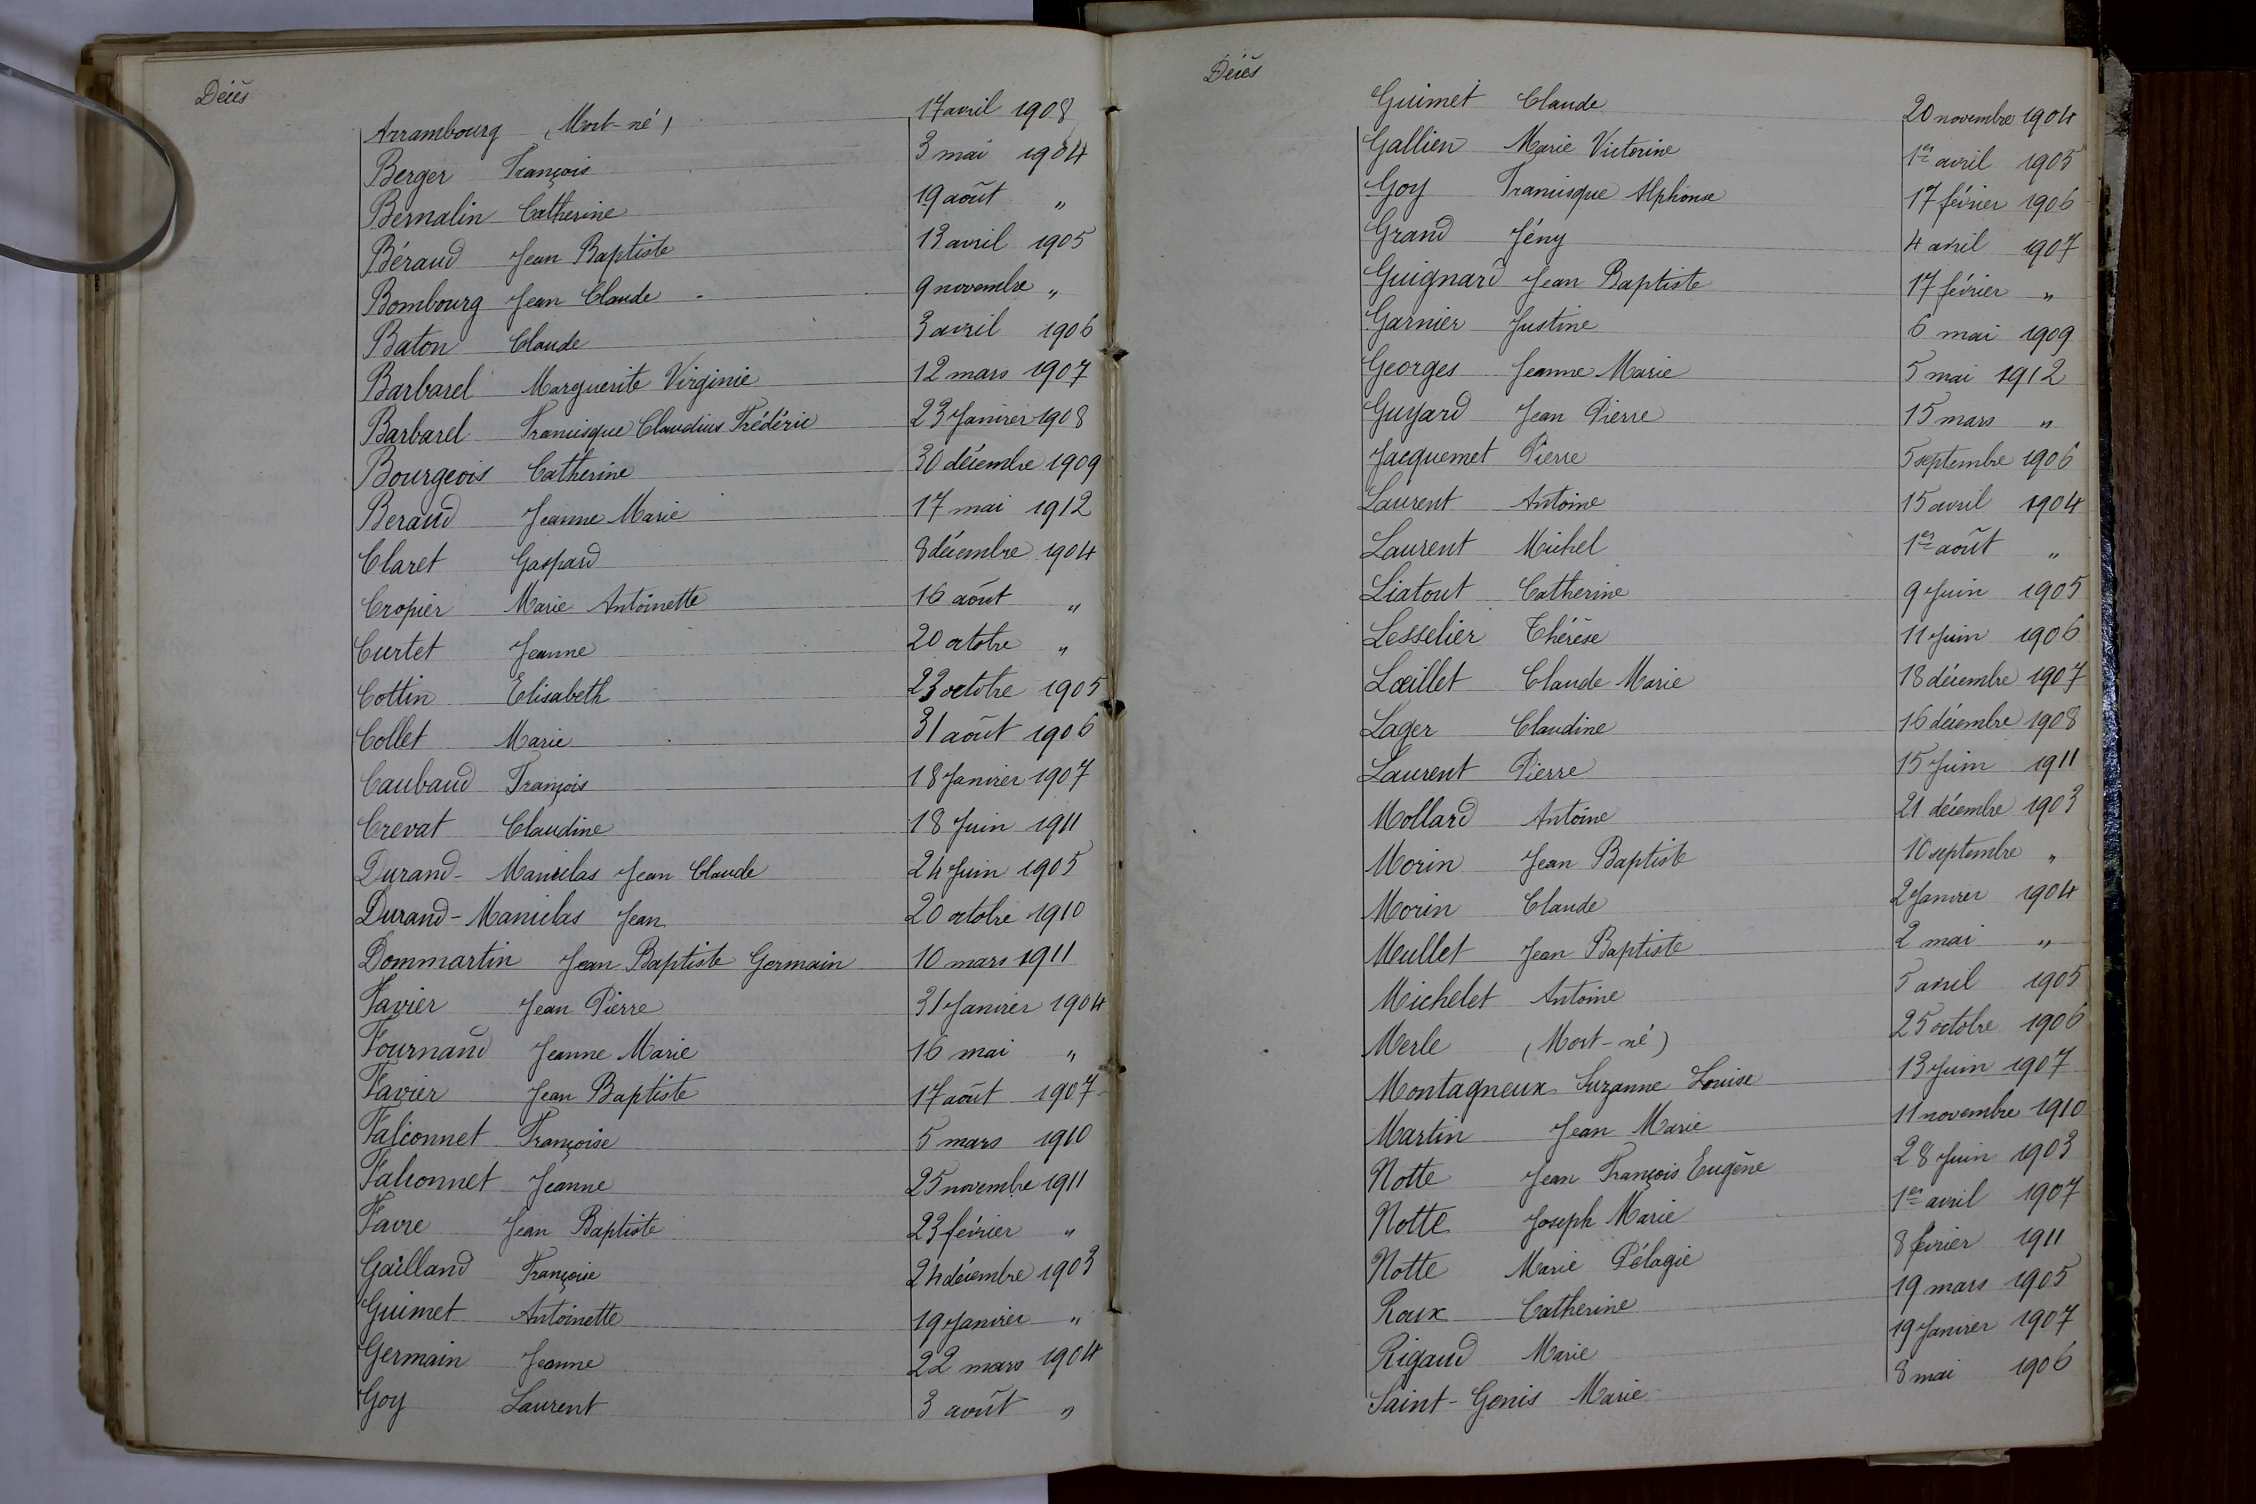 Décès
Arrambourg (Mort-né) 17 avril 1908
Berger François 3 mai 1904
Bernalin Catherine 19 août "
Béraud Jean Baptiste 13 avril 1905
Bombourg Jean Claude - 9 novembre "
Baton Claude 3 avril 1906
Barbarel Marguerite Virginie 12 mars 1907
Barbarel Francisque Claudius Frédéric 23 Janvier 1908
Bourgeois Catherine 30 décembre 1909
Beraud Jeanne Marie 17 mai 1912
Claret Gaspard 8 décembre 1904
Cropier Marie Antoinette 16 août "
Curtet Jeanne 20 octobre "
Cottin Elisabeth 23 octobre 1905
Collet Marie 31 août 1906
Caubaud François 18 Janvier 1907
Crevat Claudine 18 Juin 1911
Durand-Manielas Jean Claude 24 Juin 1905
Durand-Manielas Jean 20 octobre 1910
Dommartin Jean Baptiste Germain 10 mars 1911
Favier Jean Pierre 31 Janvier 1904
Fournand Jeanne Marie 16 mai "
Favier Jean Baptiste 17 août 1907
Falconnet Françoise 5 mars 1910
Falconnet Jeanne 25 novembre 1911
Favre Jean Baptiste 23 février "
Gailland Françoise 24 décembre 1903
Guimet Antoinette 19 Janvier "
Germain Jeanne 22 mars 1904
Goy Laurent 3 août "
Décès
Guimet Claude 20 novembre 1904
Gallien Marie Victorine 1er avril 1905
Goy Francisque Alphonse 17 février 1906
Grand Jény 4 avril 1907
Guignard Jean Baptiste 17 février "
Garnier Justine 6 mai 1909
Georges Jeanne Marie 5 mai 1912
Guyard Jean Pierre 15 mars "
Jacquemet Pierre 5 septembre 1906
Laurent Antoine 15 avril 1904
Laurent Michel 1er août "
Liatout Catherine 9 Juin 1905
Lesselier Thérèse 11 Juin 1906
Lœillet Claude Marie 18 décembre 1907
Lager Claudine 16 décembre 1908
Laurent Pierre 15 Juin 1911
Mollard Antoine 21 décembre 1903
Morin Jean Baptiste 10 septembre "
Morin Claude 2 Janvier 1904
Meullet Jean Baptiste 2 mai "
Michelet Antoine 5 avril 1905
Merle (Mort-né) 25 octobre 1906
Montagneux Suzanne Louise 13 Juin 1907
Martin Jean Marie 11 novembre 1910
Notte Jean François Eugène 28 Juin 1903
Notte Joseph Marie 1er avril 1907
Notte Marie Pélagie 8 février 1911
Roux Catherine 19 mars 1905
Rigaud Marie 19 Janvier 1907
Saint-Genis Marie 8 mai 1906